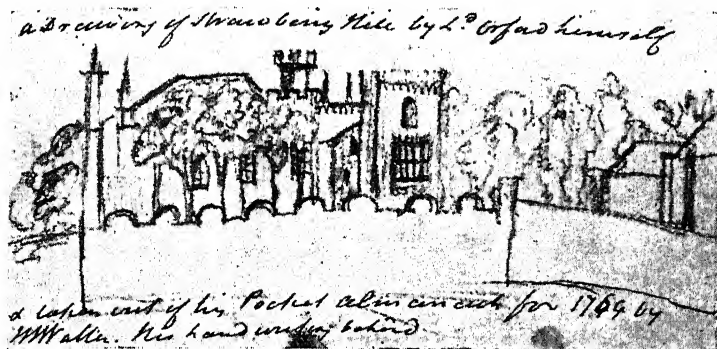 a Drawing of Strawberry Hill by Ld Orford himself
& taken out of his Pocket almanack for 1769 by
His hand writing behind